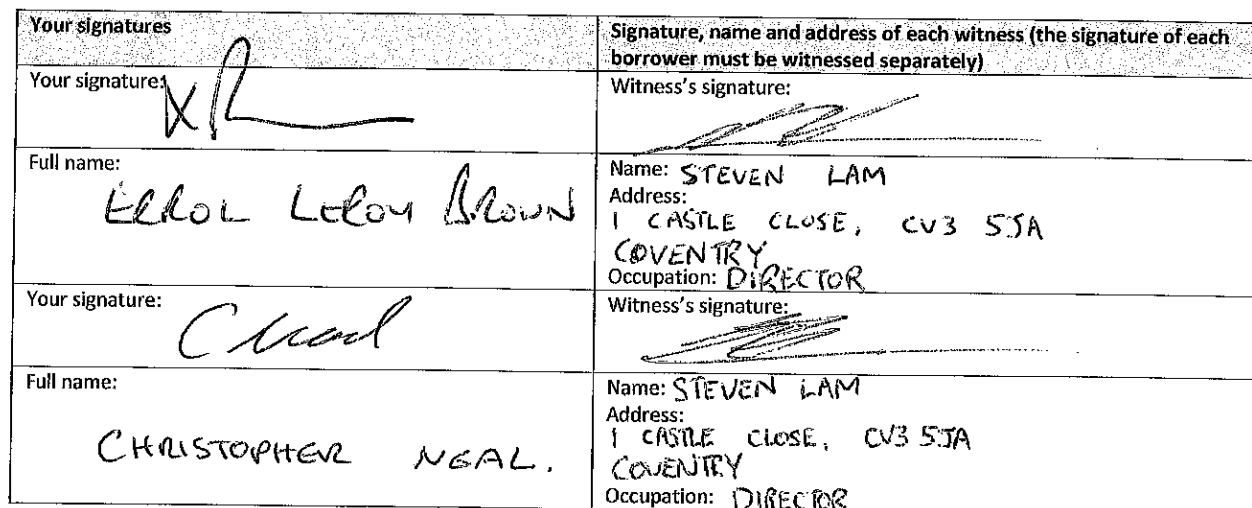 Your signatures
Signature, name and address of each witness (the signature of each
borrower must be witnessed separately)
Your signature:
Witness's signature:
Full name:
ERROL LEROY BROWN
Name: STEVEN LAM
Address:
1 CASTLE CLOSE, CV3 5JA
COVENTRY
Occupation: DIRECTOR
Your signature:
Witness's signature:
Full name:
CHRISTOPHER NEAL.
Name: STEVEN LAM
Address:
1 CASTLE CLOSE, CV3 5JA
COVENTRY
Occupation: DIRECTOR